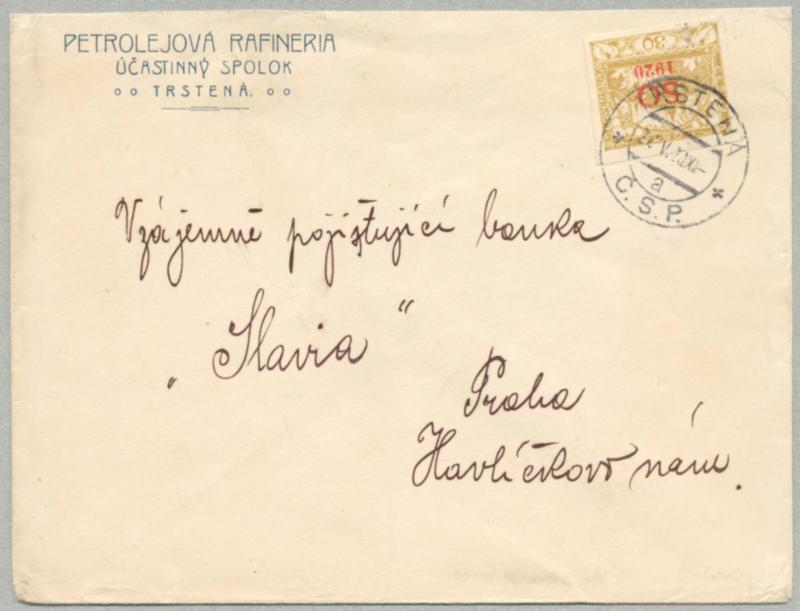 PETROLEJOVÁ RAFINERIA
ÚČASTINNÝ SPOLOK
TRSTENÁ.
30
SO
1920
TRSTENÁ
a
Č.S.P.
Vzájemně pojišťující banka
„Slavia“
Praha
Havlíčkovo nám.